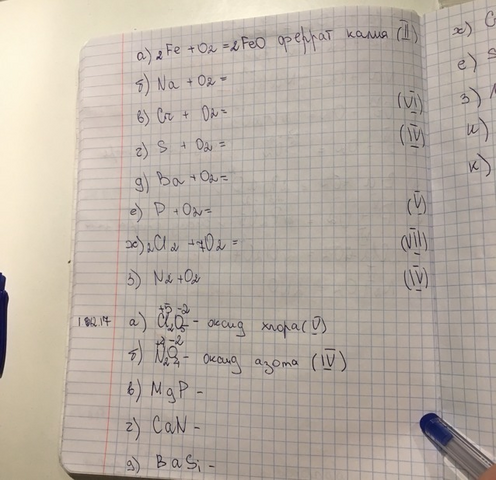 а) 2Fe + O2 = 2FeO феррат калия (II)
б) Na + O2 =
в) Cr + O2 = (VI)
г) S + O2 = (IV)
д) Ba + O2 =
е) P + O2 = (V)
ж) 2Cl2 + 7O2 = (VII)
з) N2 + O2 (IV)
+5 -2
а) Cl2O5 - оксид хлора (V)
+4 -2
б) N2O4 - оксид азота (IV)
в) MgP -
г) CaN -
д) BaSi -
ж)
е) S
з)
и)
к)